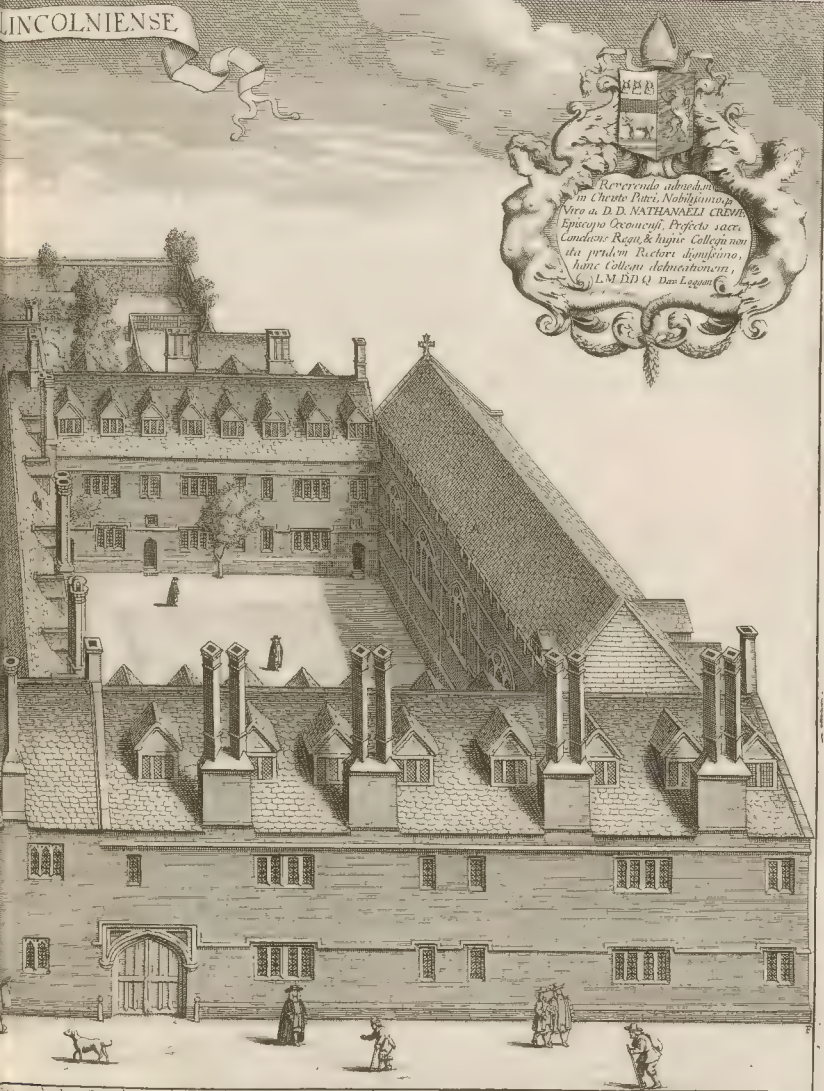 LINCOLNIENSE
Reverendo admodum
in Christo Patri, Nobilissimoq3
Viro ac D. D. NATHANAELI CREWE
Episcopo Oxoniensi, Præfecto sacri
Conclavis Regii, & hujus Collegii non
ita pridem Rectori dignissimo,
hanc Collegii delineationem,
L.M.D.D Q. Dav Loggan
F